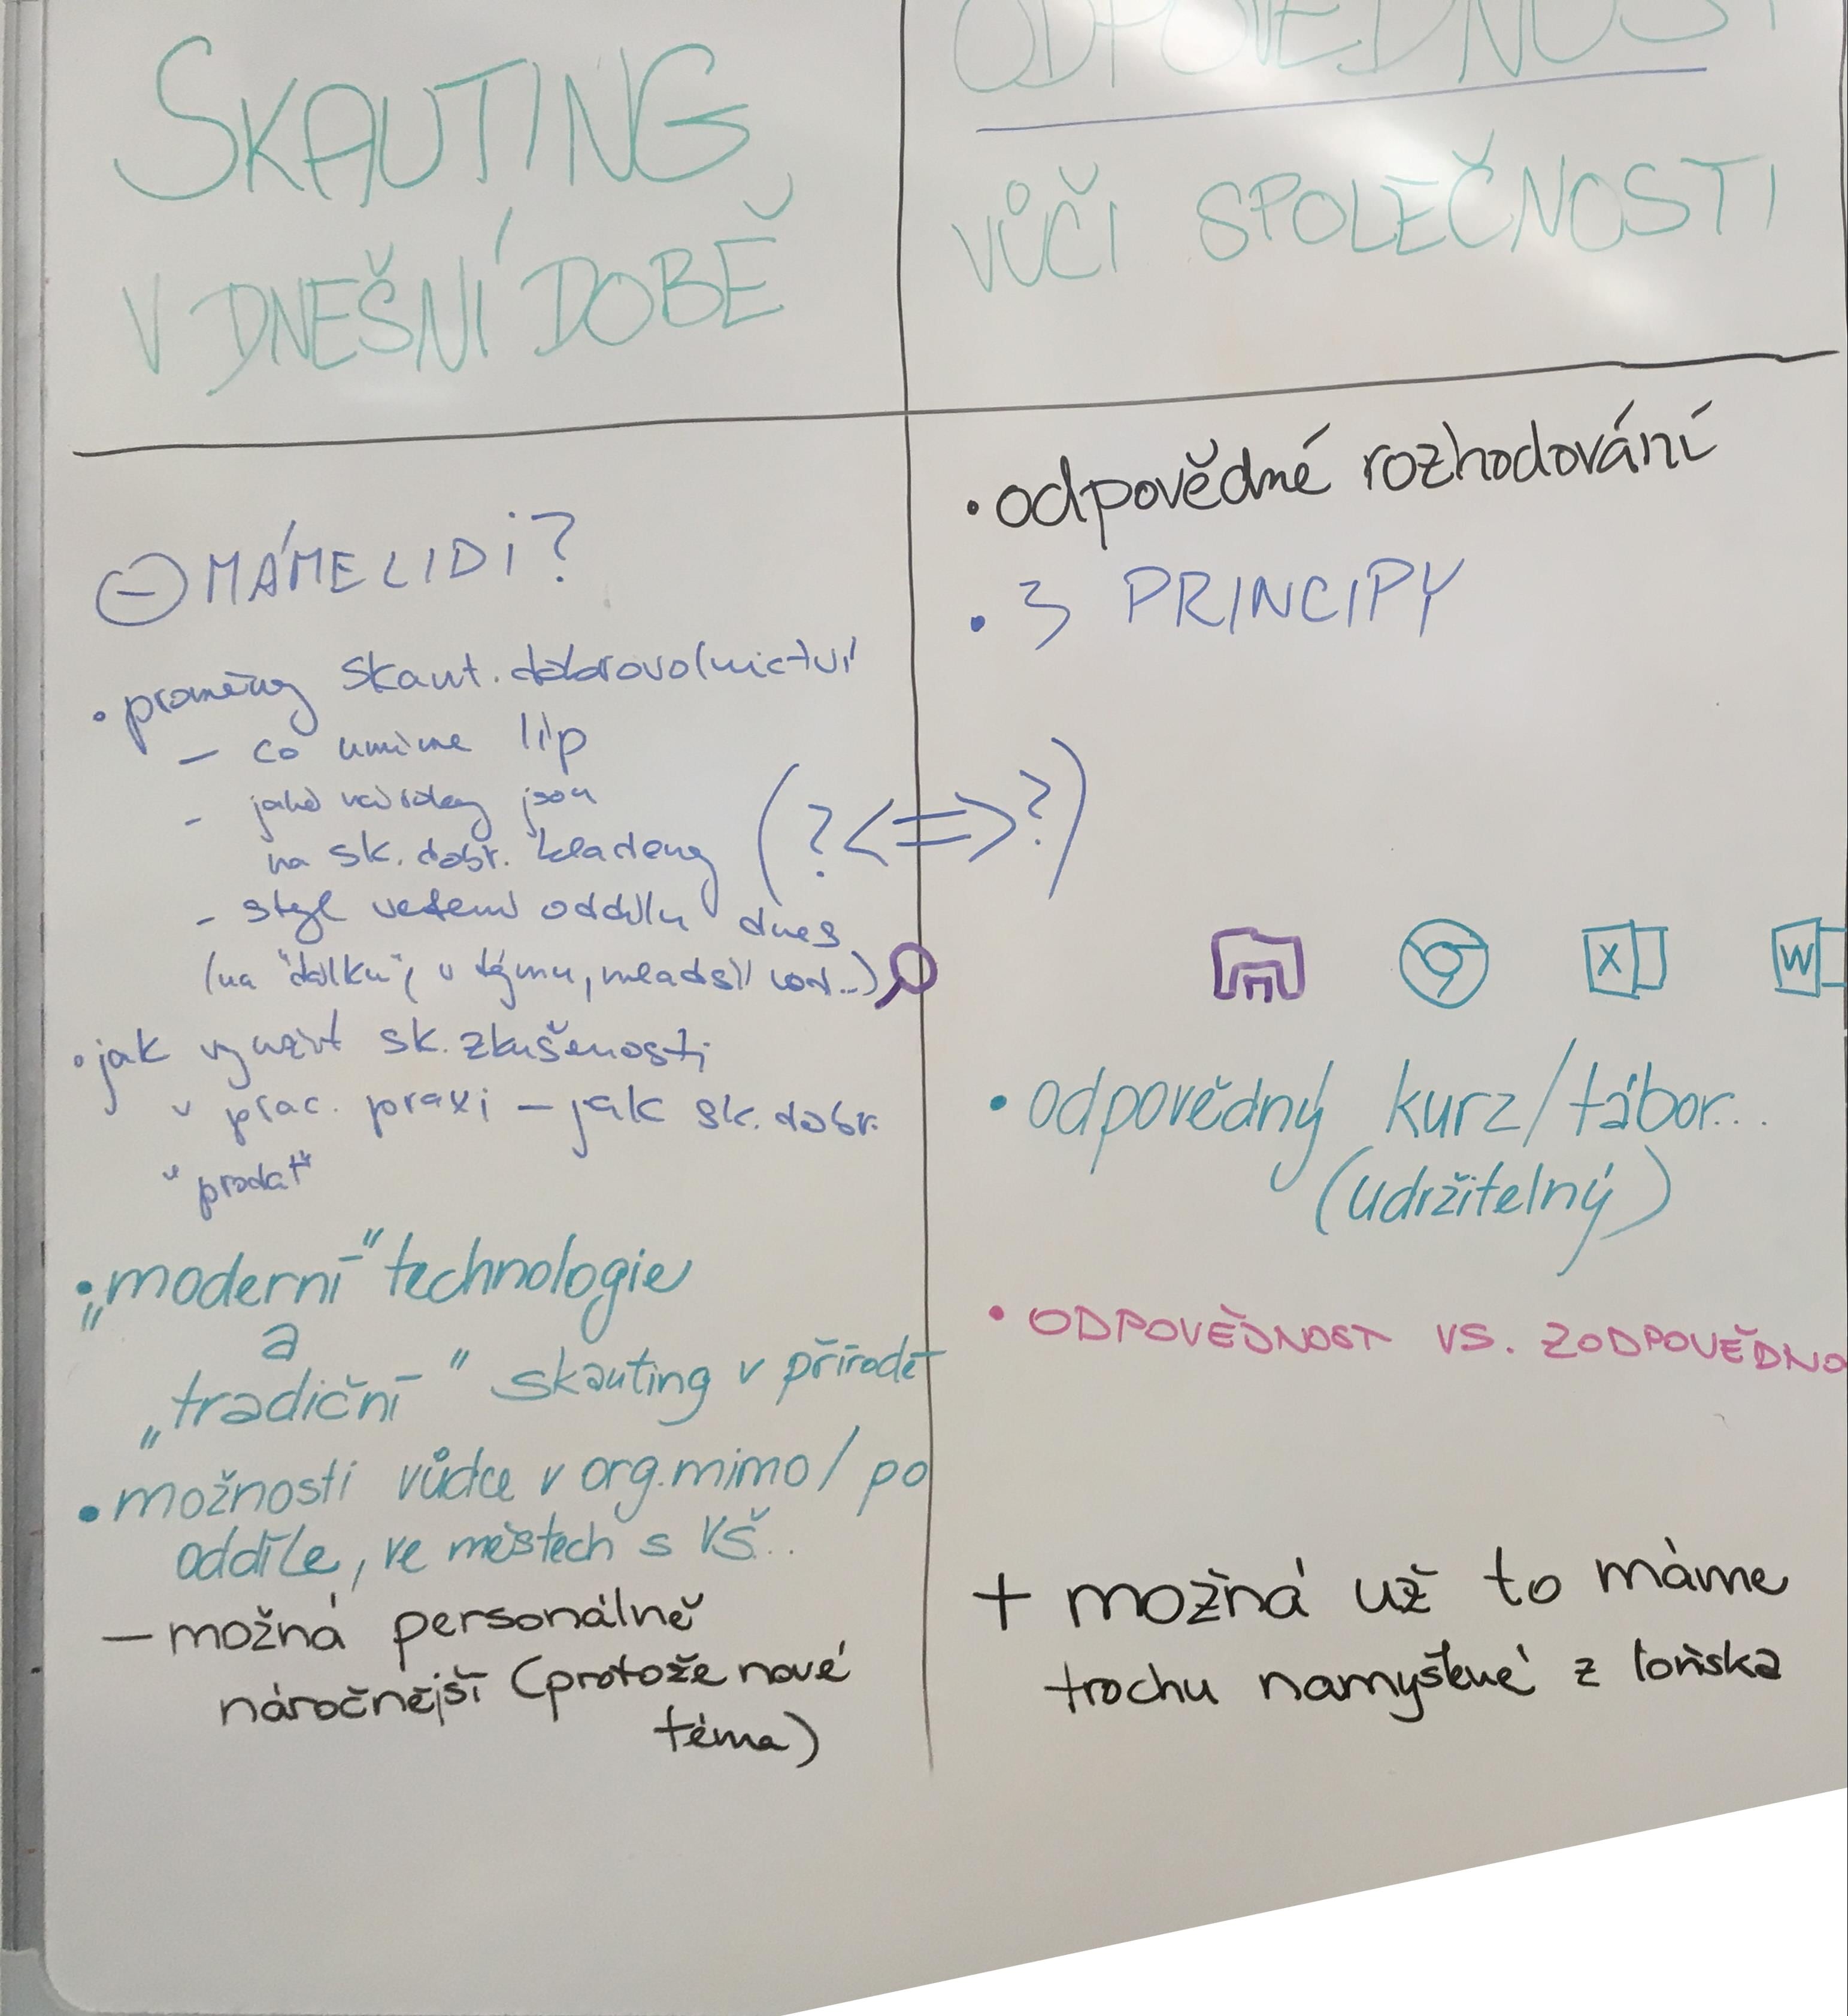 SKAUTING
V DNEŠNÍ DOBĚ
⊖ MÁME LIDI?
• proměny skaut. dobrovolnictví
– co umíme líp
- jaké nároky jsou
na sk. dobr. kladeny
(? <=> ?)
- styl vedení oddílu dnes
(na "dálku", v týmu, mladší vod..)
• jak využít sk. zkušenosti
v prac. praxi – jak sk. dobr.
"prodat"
• „moderní" technologie
a
„tradiční" skauting v přírodě
• možnosti vůdce v org. mimo / po
oddíle, ve městech s VŠ..
– možná personálně
náročnější (protože nové
téma)
ODPOVĚDNOST
VŮČI SPOLEČNOSTI
• odpovědné rozhodování
• 3 PRINCIPY
X W
• odpovědný kurz/tábor...
(udržitelný)
• ODPOVĚDNOST VS. ZODPOVĚDNO
+ možná už to máme
trochu namyšlené z loňska